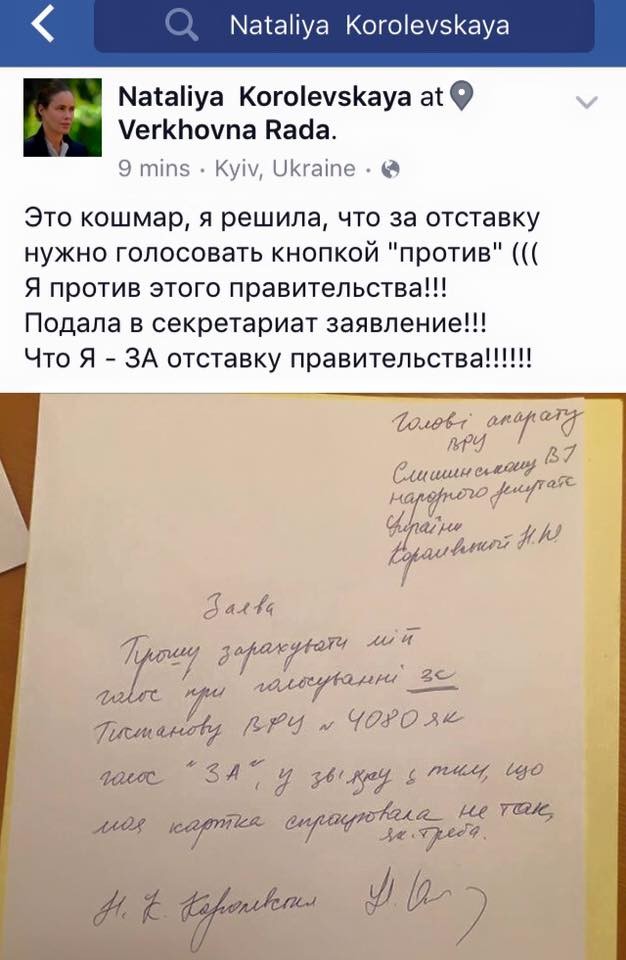 Nataliya Korolevskaya
Nataliya Korolevskaya at
Verkhovna Rada.
9 mins · Kyiv, Ukraine ·
Это кошмар, я решила, что за отставку
нужно голосовать кнопкой "против" (((
Я против этого правительства!!!
Подала в секретариат заявление!!!
Что Я - ЗА отставку правительства!!!!!!
Голові апарату
ВРУ
Слишинському ВІ
народного депутата
України
Королевської Н.Ю
Заява
Прошу зарахувати мій
голос при голосуванні за
Постанову ВРУ № 4080 як
голос "ЗА", у звʼязку з тим, що
моя картка спрацювала не так,
як треба.
Н. К. Королевская